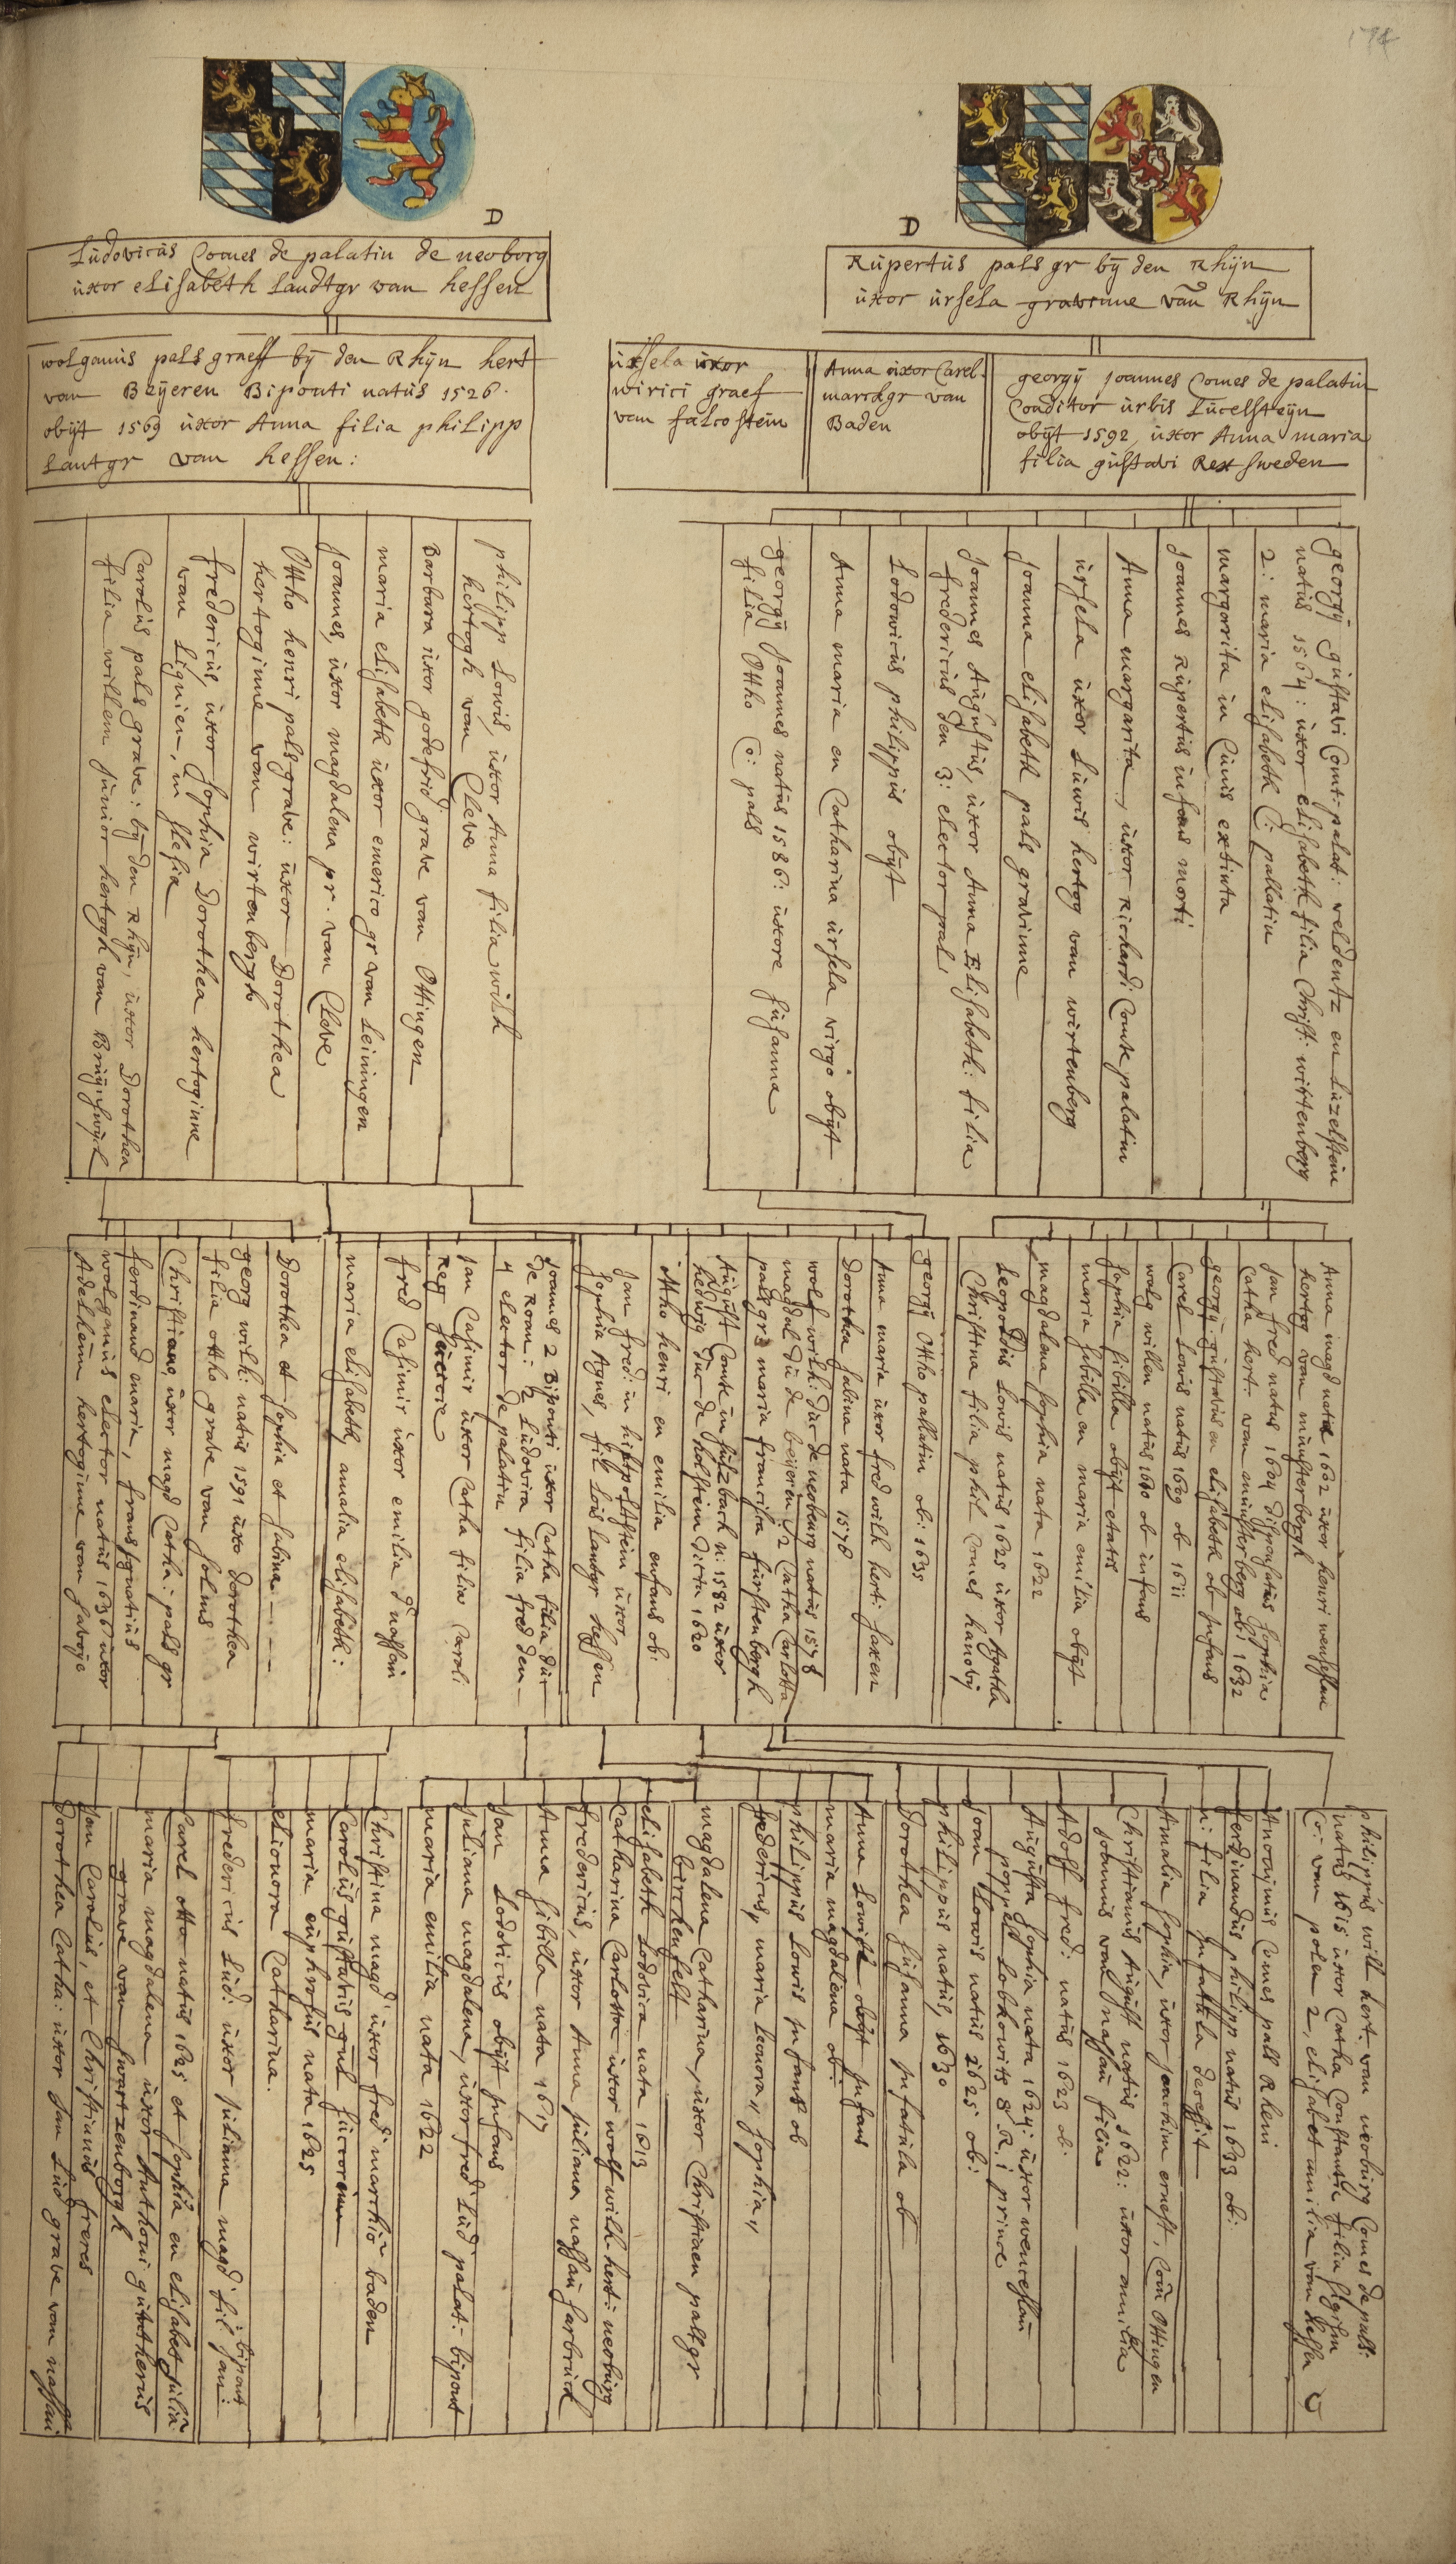 174
D
Ludovicus Comes de palatin de neoborg
uxor elisabeth Landtgr van hessen
D
Rupertus pals gr by den Rhyn
uxor ursela gravinne van Rhyn
wolganus pals graeff by den Rhyn hert
van Beyeren Biponti natus 1526.
obyt 1569 uxor Anna filia philipp
Lantgr van hessen:
ursela uxor
wirici graef
van falcostein
Anna uxor Carel.
marckgr van
Baden
georgy Joannes Comes de palatin
Conditor urbis Lucelsteyn
obyt 1592, uxor Anna maria
filia gustavi Rex sweden
georgy gustavi Comt: palat: veldentz en Luzelstein
natus 1564: uxor elisabeth filia Christ: wirtenberg
2: maria elisabeth C: pallatin
margarita in Cunis extinta
Joannes Rupertus infans morti
Anna margarita, uxor Richardi Comte palatin
ursela uxor Luwis hertog van wirtenberg
Joanna elisabeth pals gravinne
Joannes Augustus, uxor Anna Elisabeth: filia
fredericus den 3: elector pal:
Lodowicus philippus obyt
Anna maria en Catharina ursela virgo obyt
georgy Joannes natus 1586: uxore susanna
filia Ottho Co: pals
philipp Lowis, uxor Anna filia wilh
hertogh van Cleve
Barbara uxor godefrid grave van Ottingen
maria elisabeth uxor emerico gr van Leiningen
Joannes, uxor magdalena pr. van Cleve
Ottho henri pals grave: uxor Dorothea
hertoginne van wirtenbergh
fredericus, uxor sophia Dorothea hertoginne
van Lignien, in slesia
Carolus pals grave: by den Rhyn, uxor Dorothea
filia willem junior hertogh van Bruynswyck
Anna magd nata 1602 uxor henri wenseslau
hertog van munsterbergh
Jan fred natus 1604 sophia
Catha hert: van munsterberg ob: 1632
georgy gustavus en elisabeth ob infans
Carel Lowis natus 1609 ob 1611
wolg willem natus 1610 ob infans
sophia sibilla obyt etatis
maria sibilla en maria emilia obyt
magdalena sophia nata 1622
Leopoldus Lowis natus 1625 uxor Agatha
Christina filia phil Comes hanovy
georgy Ottho pallatin ob: 1635
Anna maria uxor fred wilh hert: saxen
Dorothea sabina nata 1578
wolf wilh: dux de neoburg natus 1578
magdal du de beyeren: 2 Catha Carlotta
pals gr 3 maria francisca furstenbergh
August Comte in sulzbach n: 1582 uxor
hedwig dux de holstein dicta 1620
Ottho henri en emilia enfans ob:
Jan fred: in hilpoltstein uxor
sophia Agnes, fil Lois Lantgr hessen
Joannes 2 Biponti uxor Catha filia du
de Roan: 2 Ludovica filia fred den
4 elector de palatin
Jan Casimir uxor Catha filia Caroli
Reg
fred Casimir uxor emilia d nassau
maria elisabeth, amalia elisabeth:
Dorothea et sophia et sabina
georg wilh: natus 1591 uxo dorothea
filia ottho grave van solms
Christiane, uxor magd Catha: pals gr
ferdinand maria, frans ignatius
wolganius elector natus 1636 uxor
Adelheim hertoginne van savoye
philippus wilh hert. van neoburg Comes de pals:
natus 1615 uxor Catha Constantia filia sigism
Co: van polen 2, elisabet amilia van hessen
Anonymus Comes pals Rheni
ferdinandus philipp natus 1633 ob:
n: filia infatula decessit
Amalia sophia, uxor joachim ernest, Com Ottingen
Christianus August natus 1622: uxor amilia
Joannus van nassau filia
Adolf fred: natus 1623 ob:
Augusta sophia nata 1624: uxor wenceslau
poppel Lobkowits S R. i prince
Joan Lowis natus 1625 ob:
philippus natus, 1630
Dorothea susanna infatula ob
Anna Lowise obyt infans
maria magdalena ob:
philippus Lowis infans ob
fredericus, maria Leonora, sophia,
magdalena Catharina, uxor Christiaen paltzgr
birckenfelt
elisabeth Lodovica nata 1613
Catharina Carlotta uxor wolf wilh hert: neoburg
fredericus, uxor Anna juliana nassau sarbruck
Anna sibilla nata 1617
Jan Lodovicus obyt infans
Juliana magdalena, uxor fred Lud palat: bipont
maria emilia nata 1622
Christina magd uxor fred marckio baden
Carolus gustavus
maria euphrosus nata 1625
elionora Catharina.
fredericus Lud: uxor juliana magd fil Jan: bipont
Carel otto natus 1625 et sophia en elisabet julia
maria magdalena uxor Anthoni guntherus
grave van swartzenborgh
Jan Carolus, et Christianus freres
Dorothea Catha: uxor Jan Lud grave van nassau